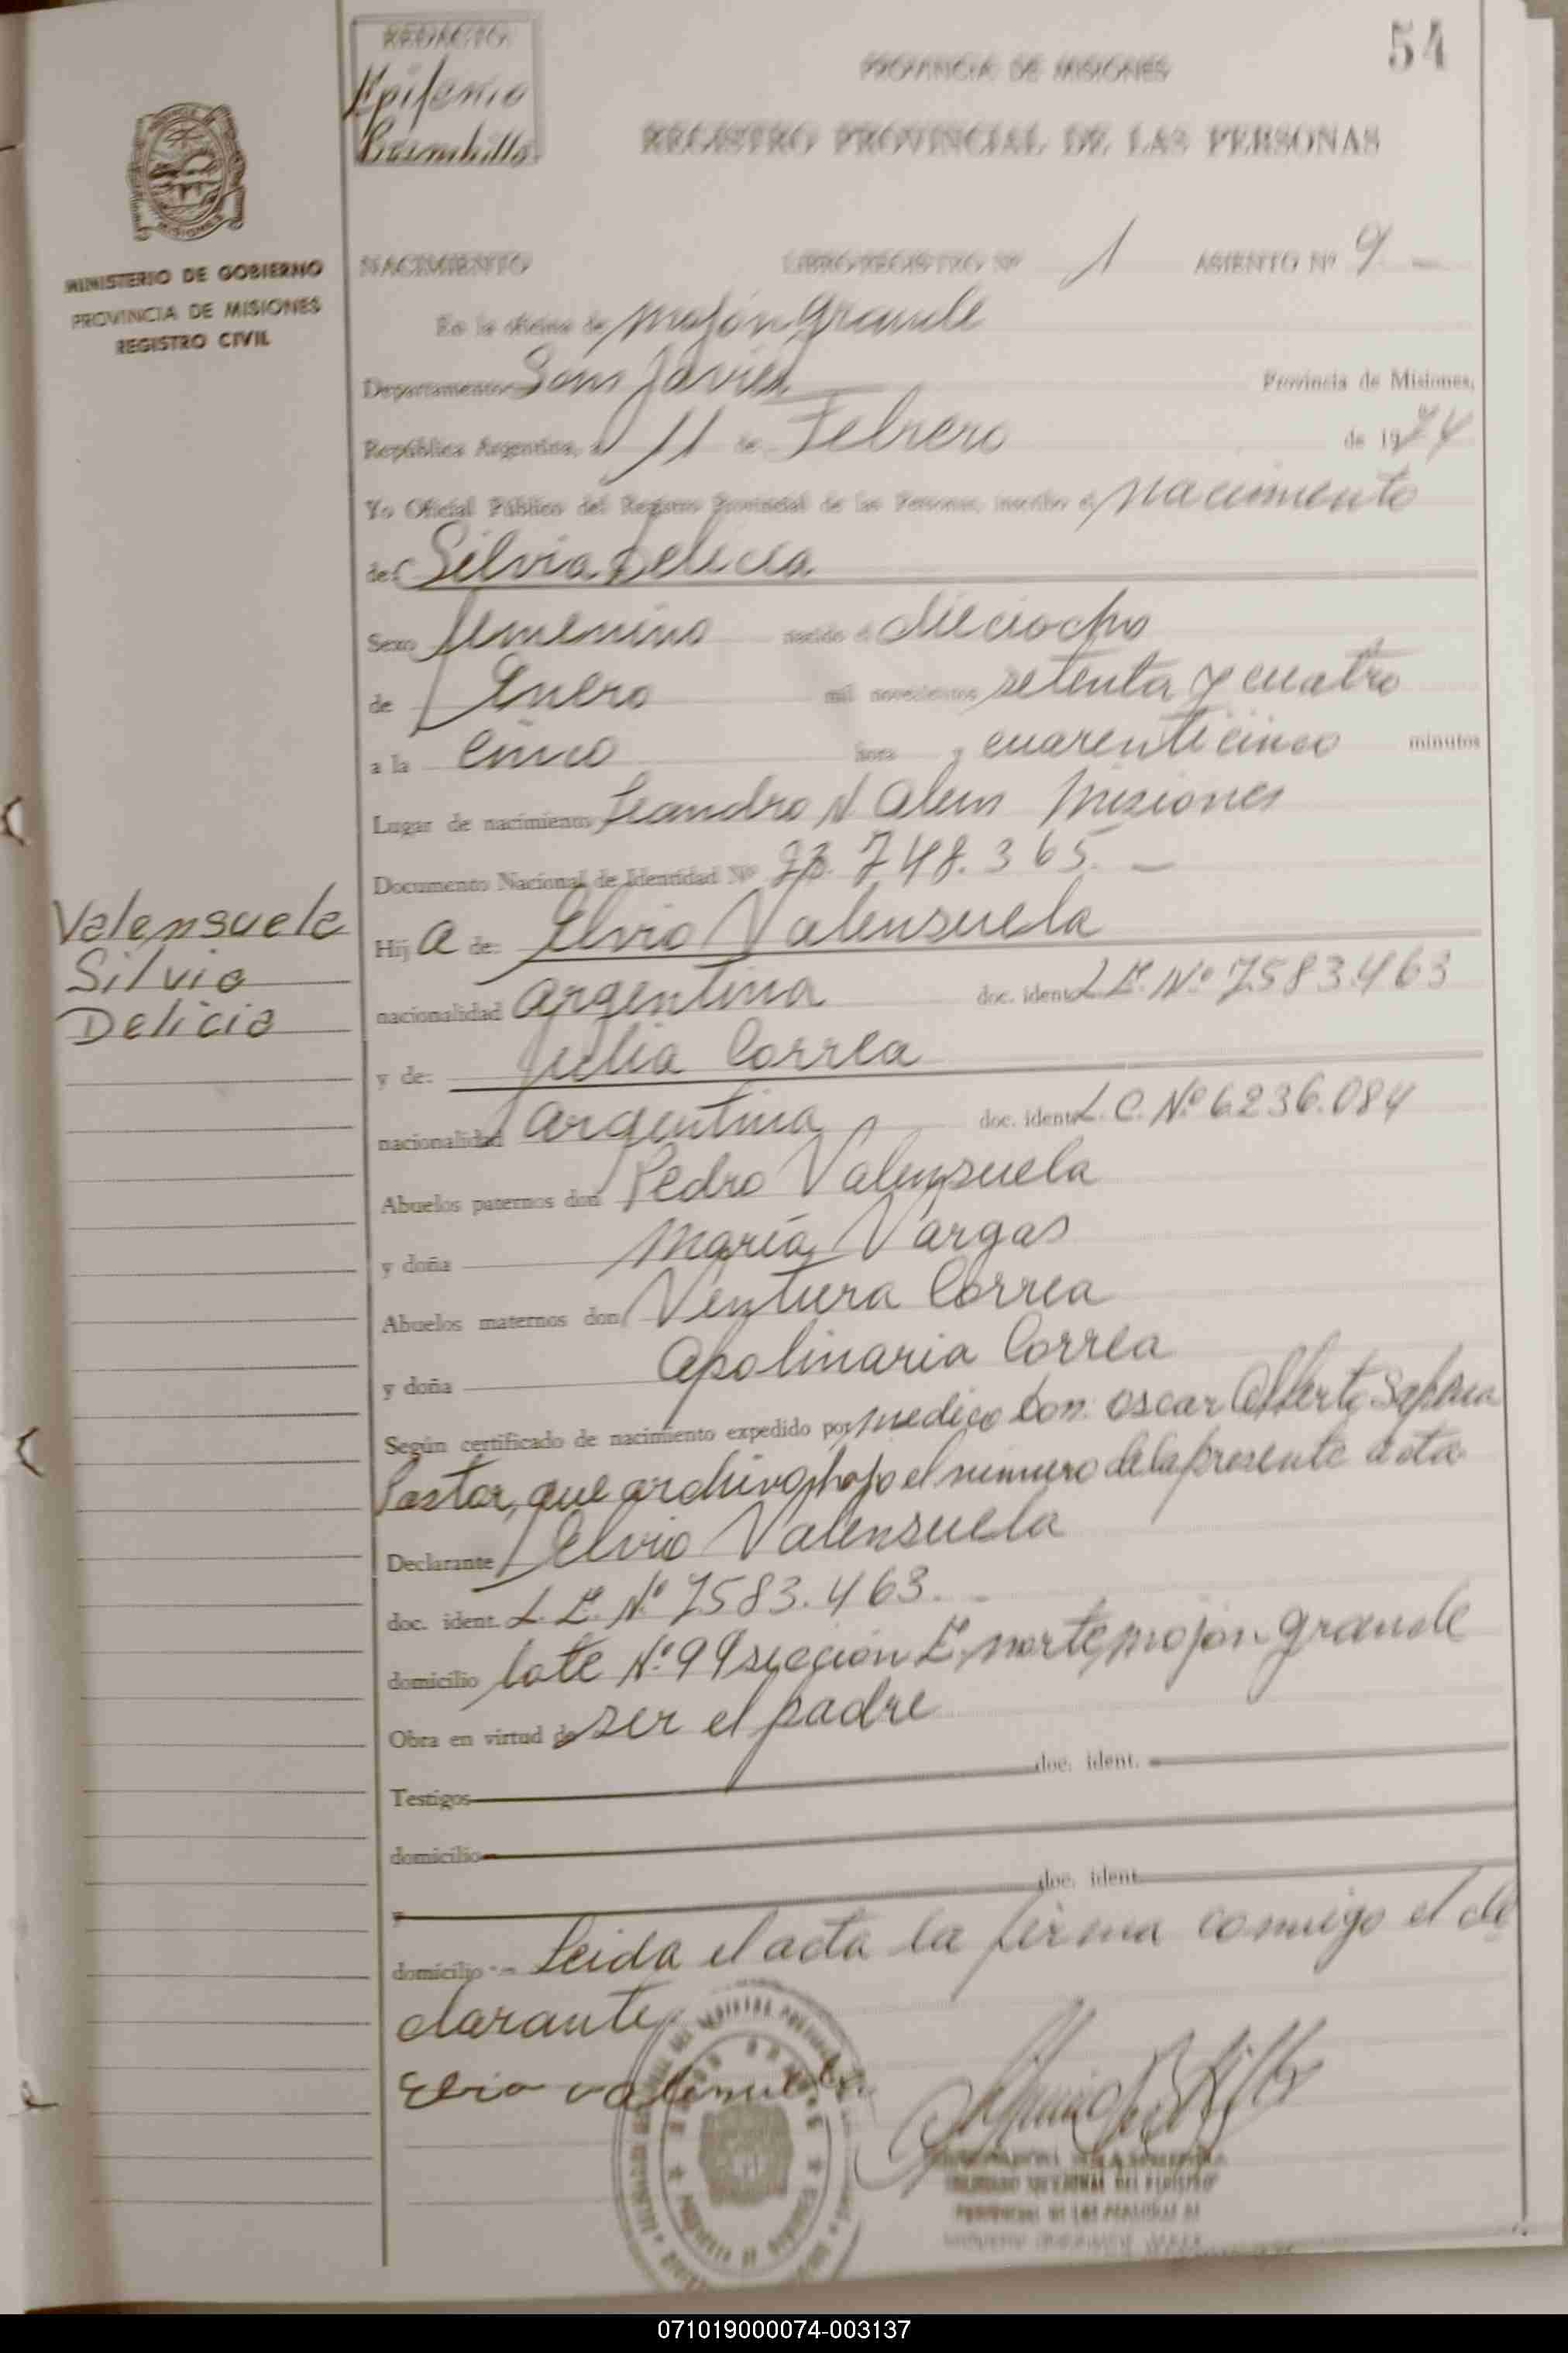 54
REDACTO:
Epifenio
PROVINCIA DE MISIONES
REGISTRO PROVINCIAL DE LAS PERSONAS
MINISTERIO DE GOBIERNO
PROVINCIA DE MISIONES
REGISTRO CIVIL
NACIMIENTO LIBRO REGISTRO Nº 1 ASIENTO Nº 9 -
En la oficina de mojón grande
Departamento San Javier Provincia de Misiones,
República Argentina, a 11 de Febrero de 1974
Yo Oficial Público del Registro Provincial de las Personas, inscribo el nacimiento
de: Silvia Delicia
Sexo femenino nacido el dieciocho
de Enero mil novecientos setenta y cuatro
a la cinco hora y cuarenticinco minutos
Lugar de nacimiento Leandro N Alem Misiones
Documento Nacional de Identidad Nº 23.748.365. -
Valensuela
Silvia
Delicia
Hij a de: Elvio Valensuela
nacionalidad argentina doc. ident. L E. Nº 7.583.463
y de: Julia Correa
nacionalidad argentina doc. ident. L. C. Nº 6.236.084
Abuelos paternos don Pedro Valensuela
y doña María Vargas
Abuelos maternos don Ventura Correa
y doña Apolinaria Correa
Según certificado de nacimiento expedido por medico Don: Oscar Alberto
Pastor, que archivo bajo el número de la presente acta
Declarante Elvio Valensuela
doc. ident. L. E. Nº 7583.463. -
domicilio lote Nº 99 sección E, norte, mojon grande
Obra en virtud de ser el padre
doc. ident.
Testigos
domicilio
doc. ident.
y
domicilio -- Leida el acta la firma comigo el de
clarante
Elvio Valensuela
071019000074-003137